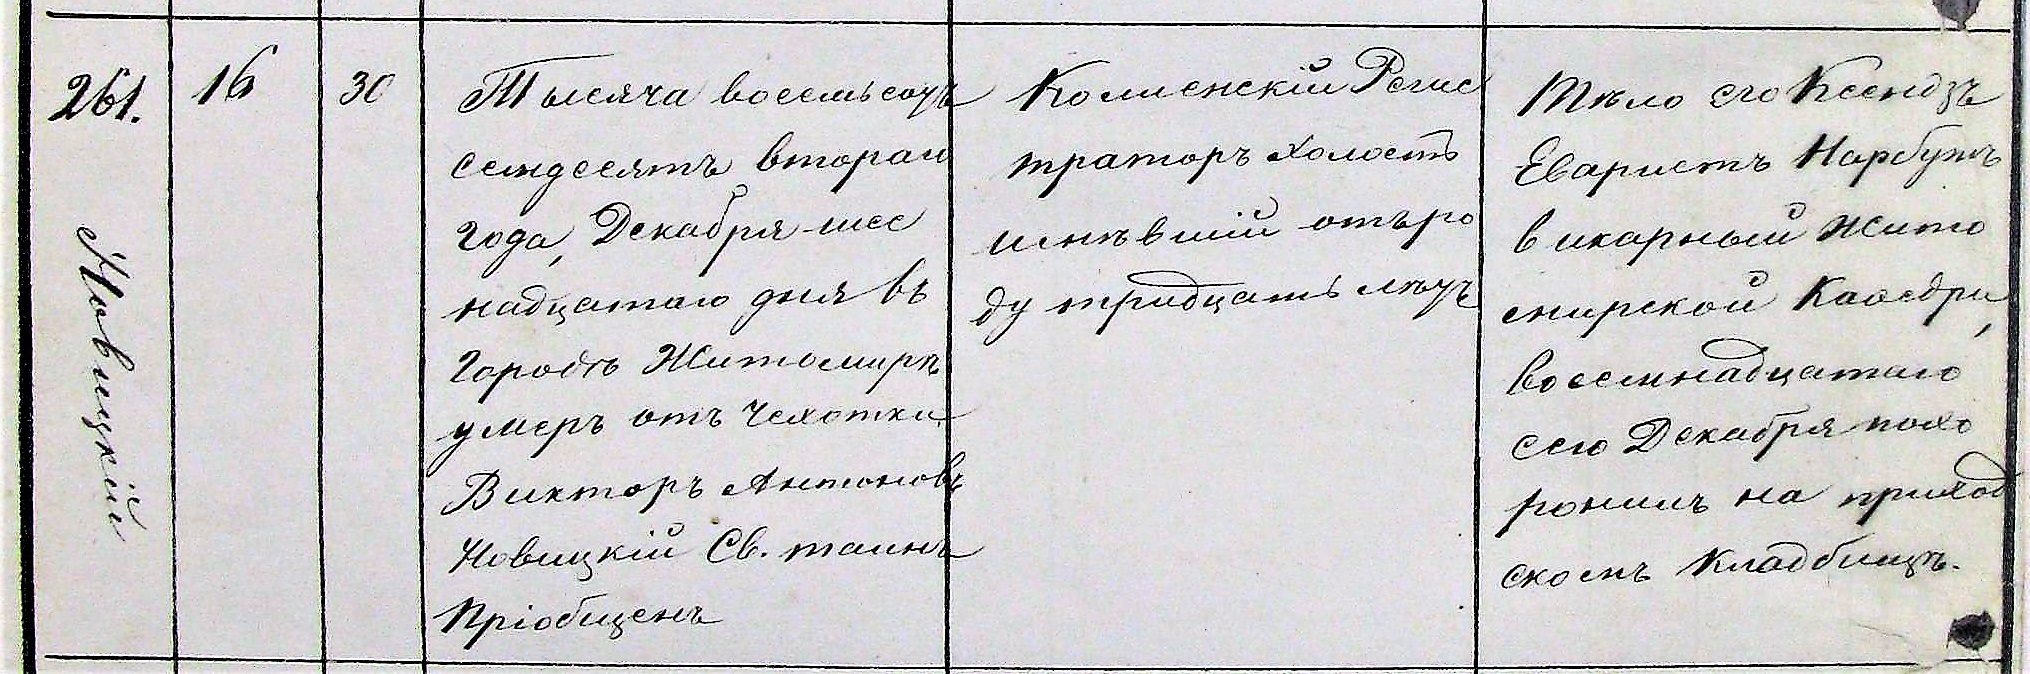 261.
Новицкій
16
30
Тысяча восемьсотъ
семдесятъ втораго
года, Декабря шес
надцатаго дня въ
городѣ Житомирѣ
умеръ отъ Чехотки
Викторъ Антоновъ
Новицкій Св. таинъ
Пріобщенъ
Колменскій Регис
траторъ холостъ
имѣвшій отъ ро
ду тридцать лѣтъ
Тѣло его Ксендзъ
Еваристъ Нарбутъ
викарный Жито
мирской Каѳедри,
восемнадцатаго
сего Декабря похо
ронилъ на приход
скомъ Кладбищѣ.